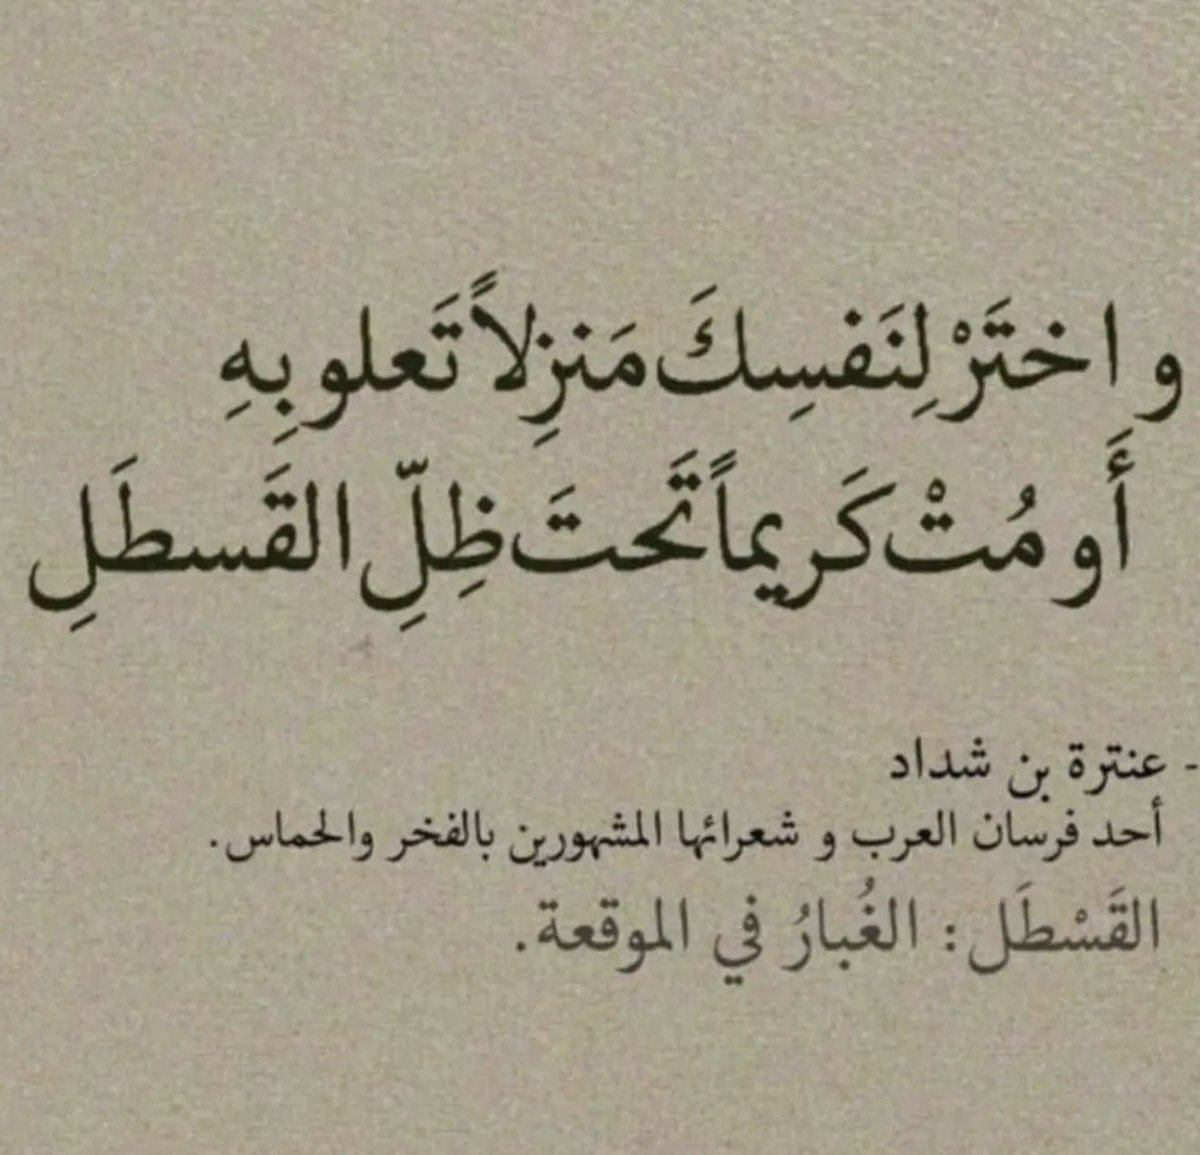 و اختَرْ لِنَفسِكَ مَنزِلاً تَعلو بِهِ
أَو مُتْ كَريماً تَحتَ ظِلِّ القَسطَلِ
- عنترة بن شداد
أحد فرسان العرب و شعرائها المشهورين بالفخر والحماس.
القَسْطَل: الغُبارُ في الموقعة.